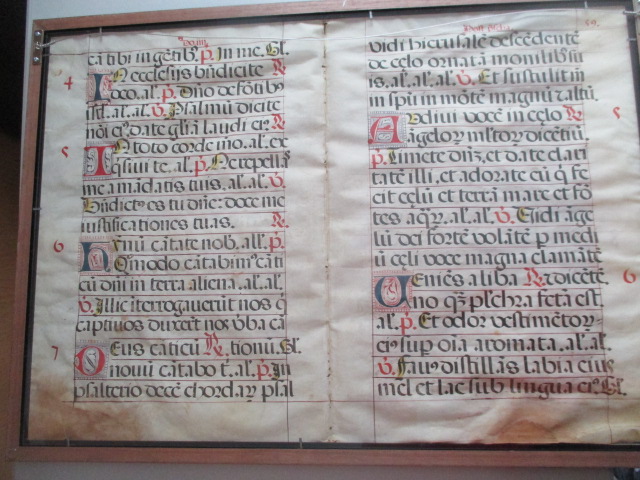 cātibi in gētib⁹. p. In me. Gl.
4 IN ecclesijs bn̄dicite R.
Deo. al. p. Dn̄o de fōtib⁹
isrl. al. al. V. Psalmū dicite
nōi ei⁹. date gl̄ia laudi ei⁹. R.
5 IN toto corde meo. al. ex
q̄siui te. al. p. Ne repellas
me a mādatis tuis. al. al. V.
Bn̄dict⁹ es tu dn̄e: doce me
iustificationes tuas. R.
6 Hymnū cātate nob. all. p.
Qm̄odo cātabim⁹ cāti
cū dn̄i in terra aliena. al. al.
V. Illic īterrogauerūt nos q̄
captiuos duxert nos vba cā
7 DEus cāticū R. tionū. Gl.
nouū cātabo t. al. p. In
psalterio decē chordaꝝ psal
vidi hierusalē descēdentē
de celo ornatā monilib⁹ su
is. al. al. al. V. Et sustulit m̄
in spū in mōtē magnū ⁊ altū.
5 AUdiui vocē in celo R.
āgeloꝝ mltoꝝ dicētiū.
p. Timete dn̄z, et date clari
tatē illi, et adorate eū q̄ fe
cit celū et terrā mare et fō
tes aq̄ꝝ. al. al. V. Uidi āge
lū dei fortē volātē p medi
ū celi voce magna clamātē
UEniēs a liba R. dicētē. 6
no q̄ȝ plchra fctā est
al. p. Et odor vestimētoꝝ
ei⁹ sup oīa aromata. al. al.
V. Fau⁹ distillās labia eius
mel et lac sub lingua ei⁹. Gl.